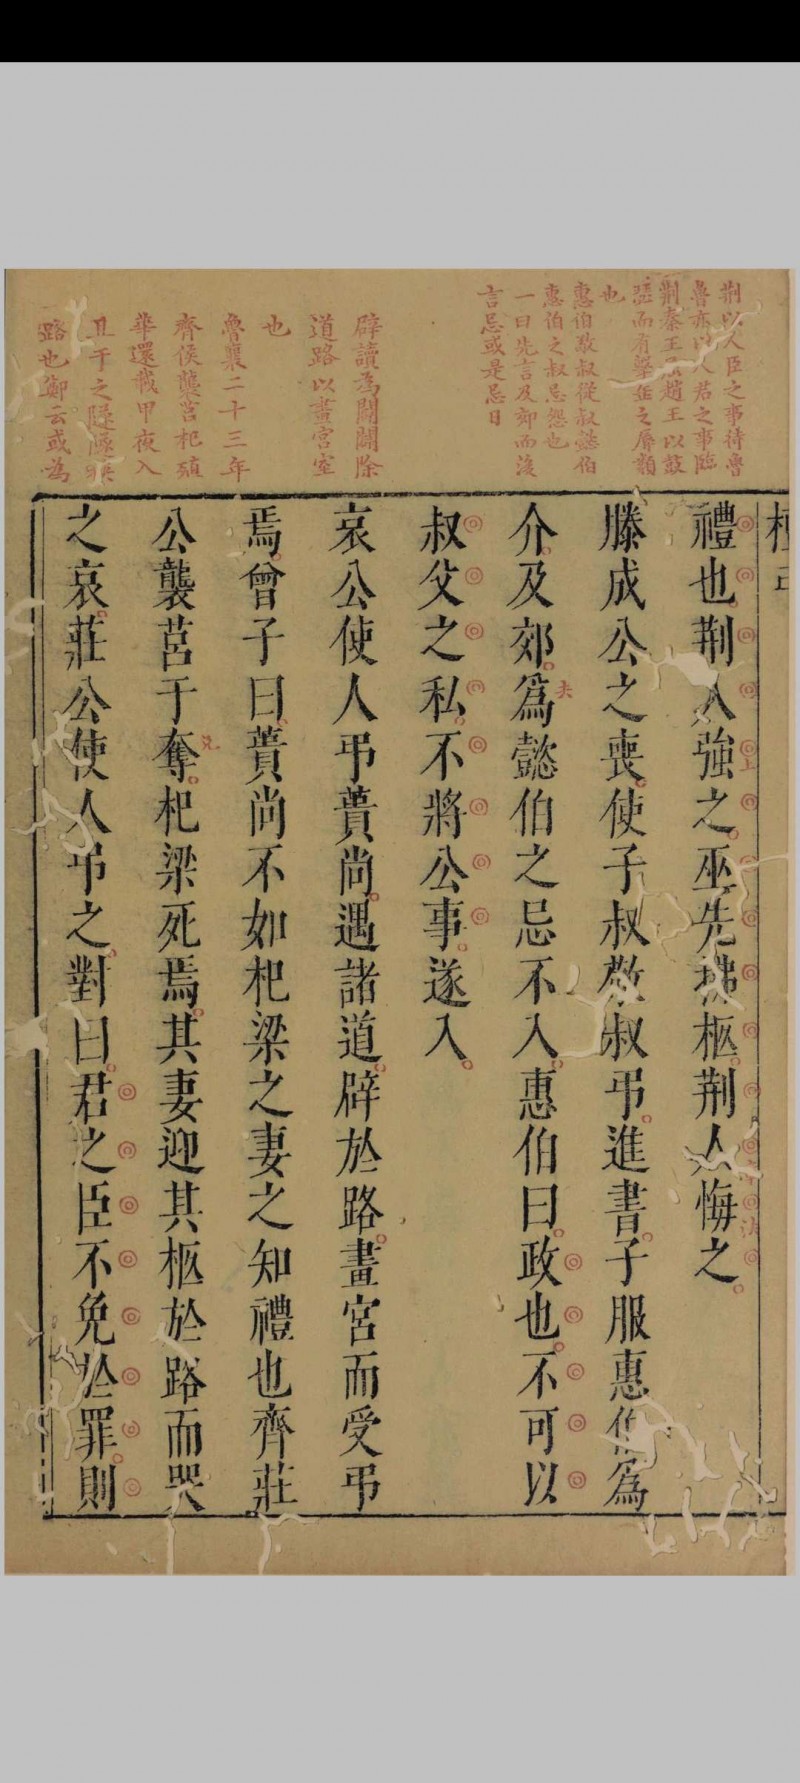 荆以人臣之事待魯
魯亦以人君之事臨
荆秦王屈趙王以鼓
瑟而有擊缶之辱類
也
惠伯敬叔從叔懿伯
惠伯之叔忌怨也
一曰先言及郊而後
言忌或是忌日
辟讀為闢闢除
道路以畫宮室
也
魯襄二十三年
齊侯襲莒杞殖
華還載甲夜入
且于之隧隧
路也鄭云或為
檀弓
禮也荆人強之巫先拂柩荆人悔之
上
滕成公之喪使子叔敬叔弔進書子服惠伯爲
介及郊爲懿伯之忌不入惠伯曰政也不可以
去
叔父之私不將公事遂入
哀公使人弔蕢尚遇諸道辟於路畫宮而受弔
焉曾子曰蕢尚不如杞梁之妻之知禮也齊莊
公襲莒于奪杞梁死焉其妻迎其柩於路而哭
兌
之哀莊公使人弔之對曰君之臣不免於罪則